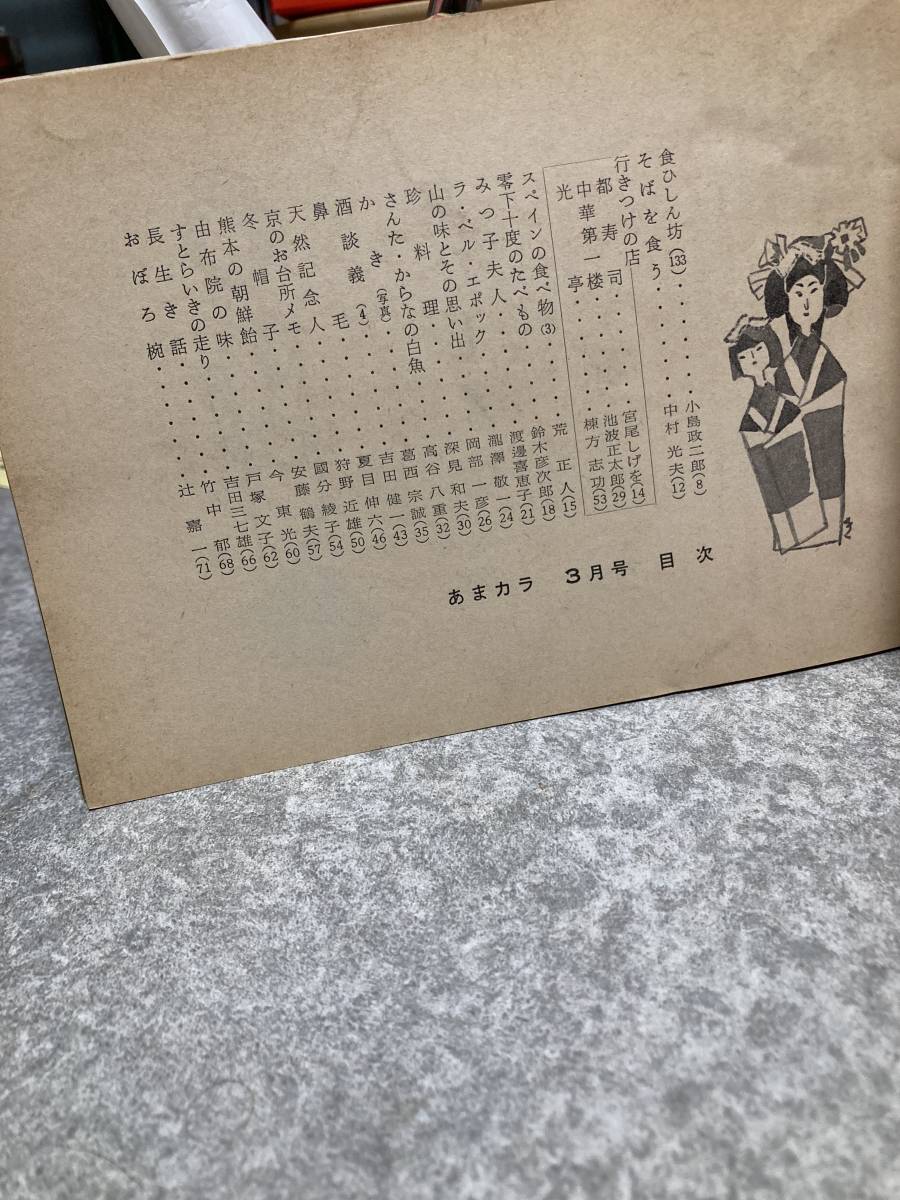 あまカラ 3月号 目次
食ひしん坊(133)・・・・・・小島政二郎(8)
そばを食う・・・・・・中村光夫(12)
行きつけの店
都寿司・・・・・・宮尾しげを(14)
中華第一楼・・・・・・池波正太郎(29)
光亭・・・・・・棟方志功(53)
スペインの食べ物(3)・・・・・・荒正人(15)
零下十度のたべもの・・・・・・鈴木彦次郎(18)
みつ子夫人・・・・・・渡邊喜恵子(21)
ラ・ベル・エポック・・・・・・瀧澤敬一(24)
山の味とその思い出・・・・・・岡部一彦(26)
珍料理・・・・・・深見和夫(30)
さんた・からなの白魚・・・・・・高谷八重(32)
かき(写真)・・・・・・葛西宗誠(35)
酒談義(4)・・・・・・吉田健一(43)
鼻毛・・・・・・夏目伸六(46)
天然記念人・・・・・・狩野近雄(50)
京のお台所メモ・・・・・・國分綾子(54)
冬帽子・・・・・・安藤鶴夫(57)
熊本の朝鮮飴・・・・・・今東光(60)
由布院の味・・・・・・戸塚文子(62)
すとらいきの走り・・・・・・吉田三七雄(66)
長生き話・・・・・・竹中郁(68)
おぼろ椀・・・・・・辻嘉一(71)